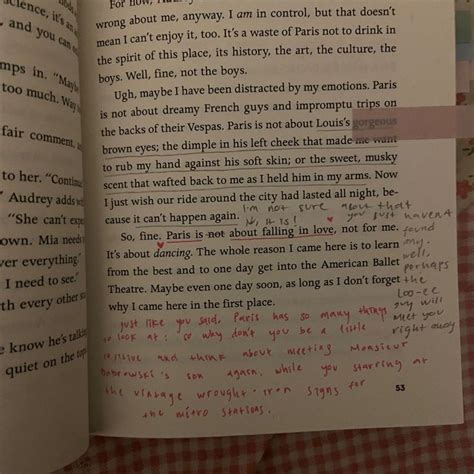 science, it's a
and you co
mps in. "Maybe
too much. Way
fair comment, an
to her. "Continu
Audrey adds wit
"She can't expe
own. Mia needs t
ver everything."
I need to see."
th every other st
e know he's talki
quiet on the top
For now,
wrong about me, anyway. I am in control, but that doesn't
mean I can't enjoy it, too. It's a waste of Paris not to drink in
the spirit of this place, its history, the art, the culture, the
boys. Well, fine, not the boys.
Ugh, maybe I have been distracted by my emotions. Paris
is not about dreamy French guys and impromptu trips on
the backs of their Vespas. Paris is not about Louis's gorgeous
brown eyes; the dimple in his left cheek that made me want
to rub my hand against his soft skin; or the sweet, musky
scent that wafted back to me as I held him in my arms. Now
I just wish our ride around the city had lasted all night, be-
cause it can't happen again.
So, fine. Paris is not about falling in love, not for me.
It's about dancing. The whole reason I came here is to learn
from the best and to one day get into the American Ballet
Theatre. Maybe even one day soon, as long as I don't forget
why I came here in the first place.
I'm not sure about that
No, it is!
you just haven't
found
my.
well,
perhaps
the
loo-ee
guy will
meet you
right away
just like you said, Paris has so many things
to look at; so why don't you be a little
and think about meeting Monsieur
son again, while you starring at
the vintage wrought-iron signs for
the métro stations.
53